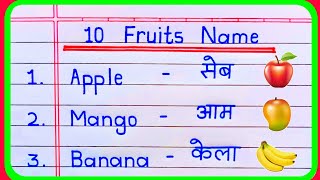 10 Fruits Name
1. Apple - सेब
2. Mango - आम
3. Banana - केला